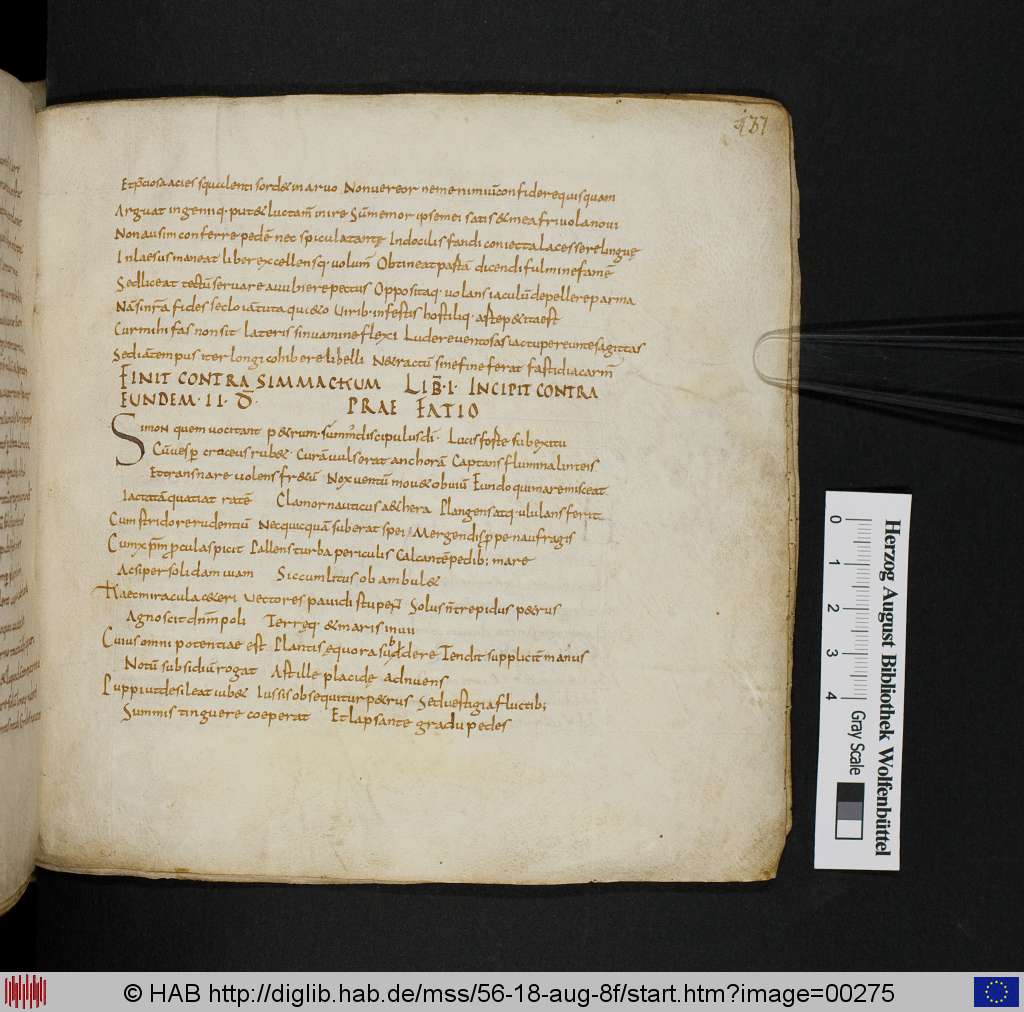 137
Et p̄ciosa acies squulenti sord& in aruo Non uereor ne me nimiū confidere quisquam
Arguat ingeniiq· put& luctam̄ inire Sū memor ipse mei satis & mea friuola noui
Non ausim conferre pedē nec spicula tantę Indocilis fandi coniecta lacessere linguę
Inlaesus maneat liber excellensq· volum̄ Obtineat partā dicendi fulmine famē
Sed liceat tectū seruare a uulnere pectus Oppositaq· uolans iaculū depellere parma
Nā si nr̄a fides seclo iā tuta quieto Uirib· infestis hostiliq· arte petita est
Cur mihi fas non sit lateris sinuamine flexi Ludere uentosas iactu pereunte sagittas
Sed iā tempus iter longi cohibere libelli Ne tractū sine fine ferat fastidia carm̄
FINIT CONTRA SIMMACHUM LIB̄·I· INCIPIT CONTRA
EUNDEM·II·D̄·
PRAEFATIO
Simon quem uocitant p&rum· sūm̄ discipulus dī· Lucis forte sub exitu
Cū uesp̄ croceus rub& Curuā uulserat anchorā Captans flumina linteis
Et transnare uolens fr&ū Nox uentū mou& obuiū Fundo qui mare misceat
Iactatā quatiat ratē Clamor nauticus a&hera Plangens atq· ululans ferit
Cum stridore rudentiū Nec quicquā suberat spei Mergendis p̄pe naufragis
Cum xp̄m p̄cul aspicit Pallens turba periculis Calcantē pedib; mare
Ac si per solidam uiam Siccum litus ob ambul&
Haec miracula c&eri Uectores pauidi stupent Solus intrepidus p&rus
Agnoscit dn̄m poli Terręq· & maris inuii
Cuius omnipotentiae est Plantis ęquora subdere Tendit supplicit̄ manus
Notū subsidiū rogat Ast ille placidę adnuens
Puppi ut desileat iub& Iussis obsequitur p&rus Sed uestigia fluctib;
Summis tinguere coeperat Et lapsante gradu pedes
Herzog August Bibliothek Wolfenbüttel
0 1 2 3 4
Gray Scale
© HAB http://diglib.hab.de/mss/56-18-aug-8f/start.htm?image=00275